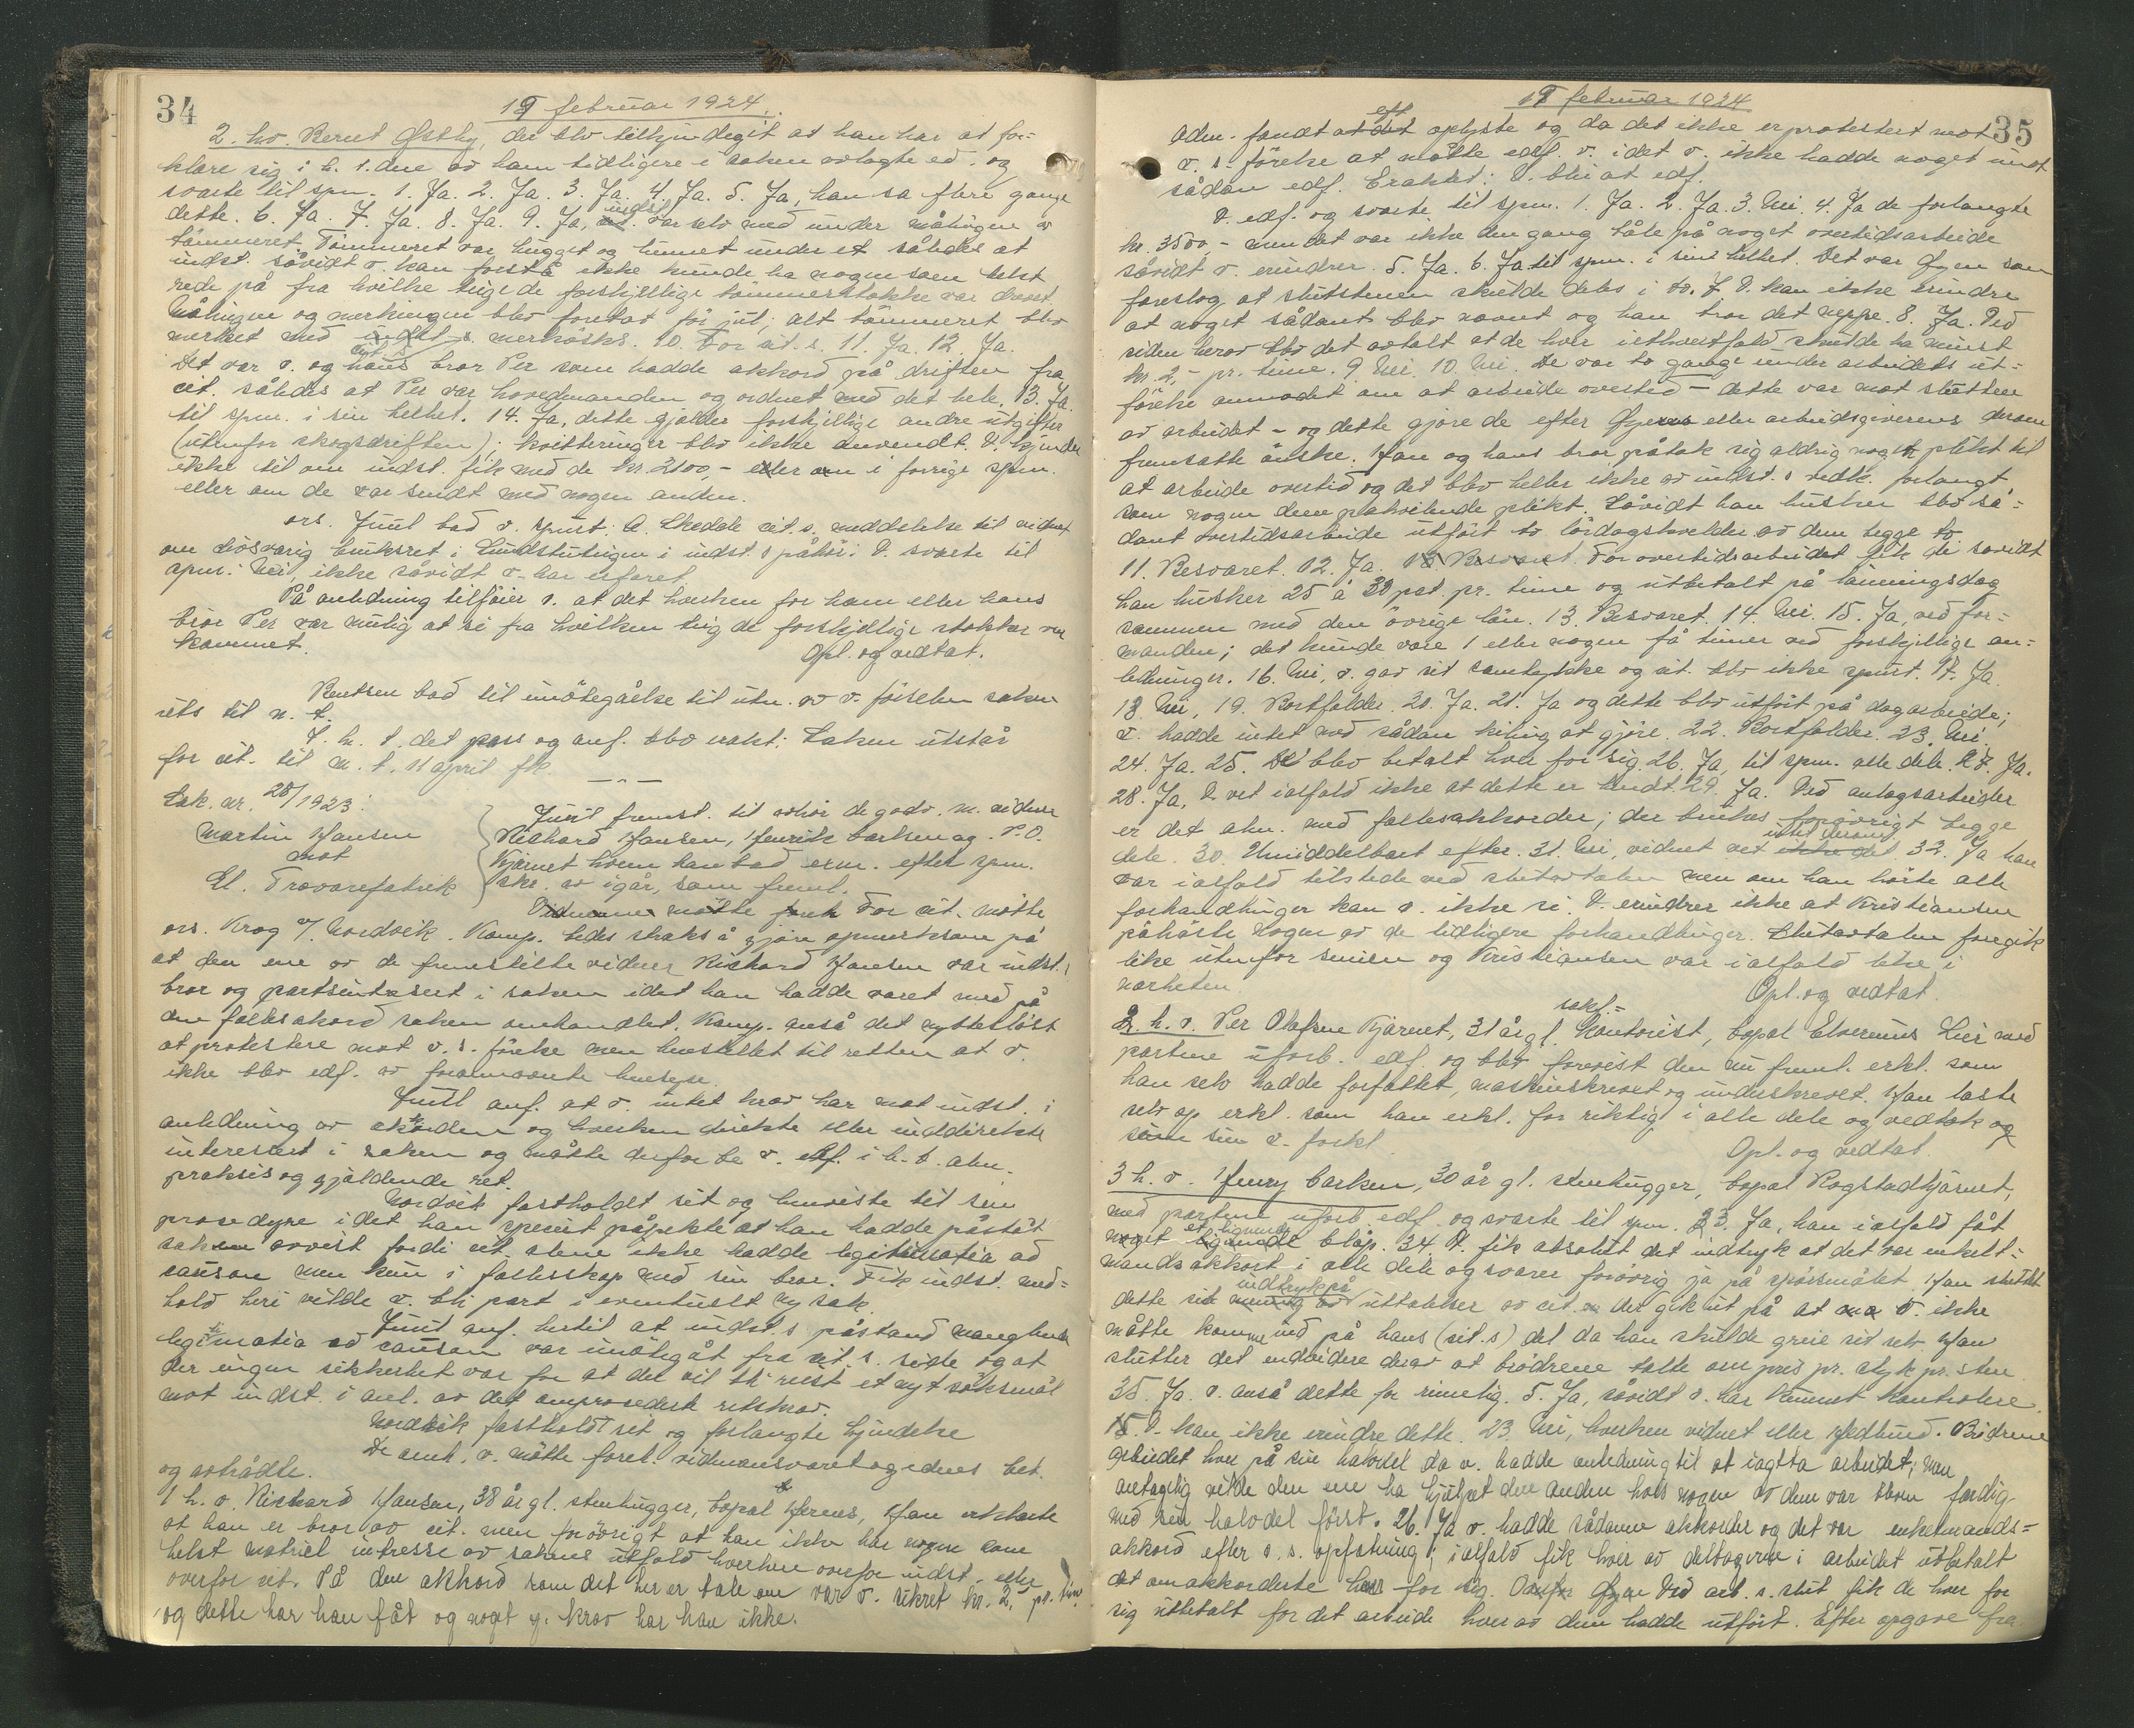 34
19 februar 1924.
2. h.v. Bernt Østby, der blev tilkjendegit at han har at for-
klare sig i h. t. den av ham tidligere i saken avlagte ed. og
svarte til spm. 1. Ja. 2. Ja. 3. Ja. 4. Ja. 5. Ja, han sa flere gange
dette. 6. Ja. 7. Ja. 8. Ja. 9. Ja, indst. var selv med under målingen av
tömmeret. Tömmeret var hugget og lunnet under et således at
indst. såvidt v. kan forstå ikke kunde ha nogensom helst
rede på fra hvilke teige de forskjellige tömmerstokke var drevet.
Målingen og merkningen blev foretat för jul; alt tömmeret blev
merket med cit.s merkösks. 10. For cit. s. 11. Ja. 12 Ja.
Det var v. og hans bror Per som hadde akkord på driften fra
cit. således at Per var hovedmanden og ordnet med det hele. 13. Ja.
til spm. i sin helhet. 14. Ja, dette gjælder forskjellige andre utgifter
(utenfor skogsdriften); kvitteringer blev ikke anvendt. V. kjender
ikke til om indst. fik med de kr. 2100,- eller om i forrige spm.
eller om de var sendt med nogen anden.
ors. Juul bad v. spurt: A. Skedde cit. s. meddelelse til vidnet
om hösvarig bruksret i Lundstuteigen i indst. s påhör: V. svarte til
spm.: Nei, ikke såvidt v. har erfaret
På anledning tilföier v. at det hverken for ham eller hans
bror Per var mulig at si fra hvilken teig de forskjellige stokker var
kommet.
Opl. og vedtat.
Bentsen bad til imötegåelse til utn. av v. förselen saken
uts til n. t.
I h. t. det pass og anf. blev erakt: Saken utstår
for cit. til m. t. 11 april fk.
Sak. nr. 28/1923:
Martin Hansen
mot
El. Trævarefabrik
Juul fremst. til avhör de godv. m. vidner
Richard Hansen, Henrik Carlsen og P.O.
Kjernet hvem han bad exm. efter spm.
skr. av igår, som freml.
Vidnerne mötte foreh For cit. mötte
ors. Krog v/ Nordvik. Komp. bedes straks å gjöre opmerksom på
at den ene av de fremstilte vidner Richard Hansen var indst.s
bror og partsinteresert i saken idet han hadde været med på
den fællesakord saken omhandlet. Komp. anså det nyttelöst
at protestere mot v. s. förelse men henstillet til retten at v.
ikke blev edf. av foranævnte hensyn.
Juul anf. at v. intet krav har mot indst. i
anledning av akkorden og hverken direkte eller inddirekte
interessert i saken og måtte derfor be v. edf. i h. t. alm.
praksis og gjældende ret.
Nordvik fastholdt sit og henviste til sin
prosedyre i det han specielt påpekte at han hadde påstått
saken avvist fordi cit. alene ikke hadde legitimatia ad
causam men kun i fællesskap med sin bror. Fik indst. med-
hold heri vilde v. bli part i eventuelt ny sak.
Juul anf. hertil at indst. s påstand manglende
legitimatia ad causam var imötegåt fra cit. s. side og at
der ingen sikkerhet var for at det vil bli reist et nyt søksmål
mot indst. i anl. av det omprosederte retskrav.
Nordvik fastholdt sit og forlangte kjendelse
De anh. v. mötte foreh. vidneansvaret og edens bet.
og avtrådte.
1 h. v. Richard Hansen, 38 år gl. stenhugger, bopæl Hernes, Han erklærte
at han er bror av cit. men forövrigt at han ikke har nogen som
helst materiel interesse av sakens utfald hverken overfor indst. eller
overfor cit. På den akkord som det her er tale om var v. sikret kr. 2,- pr. time
og dette har han fåt og noget y. krav har han ikke.
35
19 februar 1924
Adm. fandt at det eft oplyste og da det ikke er protestert mot
v. s. förelse at måtte edf. v. idet v. ikke hadde noget imot
sådan edf. Eraktet: V. blir at edf.
V. edf. og svarte til spm. 1. Ja. 2. Ja. 3. Nei. 4. Ja de forlangte
kr. 3500,- men det var ikke den gang tale på noget overtidsarbeide
såvidt v. erindrer. 5. Ja. 6. Ja til spm. i sin helhet. Det var Øyen som
foreslog at slutstenen skulde deles i to. 7. V. kan ikke erindre
at noget sådant blev nævnt og han tror det neppe. 8. Ja. Ved
siden herav blev det avtalt at de hver iethvertfald skulde ha minst
kr. 2,- pr. time. 9 Nei. 10. Nei. De var to gange under arbeidets ut-
förelse anmodet om at arbeide overtid - dette var mot slutten
av arbeidet - og dette gjore de efter Øyens eller arbeidsgiverens derom
fremsatte önske. Han og hans bror påtok sig aldrig noget plikt til
at arbeide overtid og det blev heller ikke av indst. s vedk. forlangt
som nogen dem påhvilende plikt. Såvidt han husker blev så-
dant overtidsarbeide utfört to lördagskvelder av dem begge to.
11. Besvaret. 12. Ja. For overtidsarbeidet fik de såvidt
han husker 25 à 30 pct. pr. time og utbetalt på lönningsdag
sammen med den övrige lön. 13. Besvaret. 14. Nei. 15. Ja, ved for-
manden; det kunde være 1 eller nogen få timer ved forskjellige an-
ledninger. 16. Nei, v. gav sit samtykke og cit. blev ikke spurt. 17. Ja.
18. Nei, 19. Bortfalder. 20. Ja. 21. Ja og dette blev utfört på dagarbeide;
v. hadde intet med sådan kiling at gjöre. 22. Bortfalder. 23. Nei
24. Ja. 25. De blev betalt hver for sig. 26. Ja, til spm. alle dele. 27. Ja.
28. Ja, V vet ialfald ikke at dette er hendt. 29. Ja. Ved anlægsarbeider
er det alm. med fællesakkorder; der brukes forövrigt begge
dele. 30. Umiddelbart efter. 31. Nei, vidnet vet intet derom 32. Ja han
var ialfald tilstede ved slutavtalen men om han hörte alle
forhandlinger kan v. ikke si. V. erindrer ikke at Kristiansen
påhörte nogen av de tidligere forhandlinger. Slutavtalen foregik
like utenfor smien og Kristiansen var ialfald like i
nærheten.
Opl. og vedtat.
2. h. v. Per Olafsen Kjærnet, 31 år gl. sakf.= kontorist, bopæl Elverums Lier med
partene ubesl. edf. og blev forevist den nu freml. erkl. som
han selv hadde forfattet, maskinskrevet og underskrevet. Han læste
selv op erkl. som han erkl. for riktig i alle dele og vedtok og
sin v. forkl.
Opl. og vedtat.
3 h. v. Henry Carlsen, 30 år gl. stenhugger, bopæl Rogstadkjærnet,
med partene ubesl. edf. og svarte til spm. 33. Ja, han ialfald fåt
et lignende beløp. 34. V. fik absolut det indtryk at det var enkelt-
mandsakkort i alle dele og svarer forövrig ja på spörsmålet. Han stuttet
dette sit indtryk på uttalelser av cit. der gik ut på at v. ikke
måtte komme ind på hans (cit.s) del da han skulde greie sit selv. Han
slutter det endvidere derav at brödrene talte om pris pr. styk pr. sten
35. Ja. v. anså dette for rimelig. 5. Ja, såvidt v. har kunnet kontrolere.
15. V. kan ikke erindre dette. 23. Nei, hverken vidnet eller Hedlund. Brödrene
arbeidet hver på sin halvdel da v. hadde anledning til at iagtta arbeidet; men
antagelig vilde den ene ha hjulpet den anden hvis nogen av dem var blevn færdig
med sin halvdel först. 26. Ja v. hadde sådanne akkorder og det var enkemands-
akkord efter v. s. opfatning; ialfald fik hver av deltagerne i arbeidet utbetalt
det omakkorderte hver for sig. Ved arb. s. slut fik de hver for
sig utbetalt for det arbeide hver av dem hadde utfört. Efter opgave fra